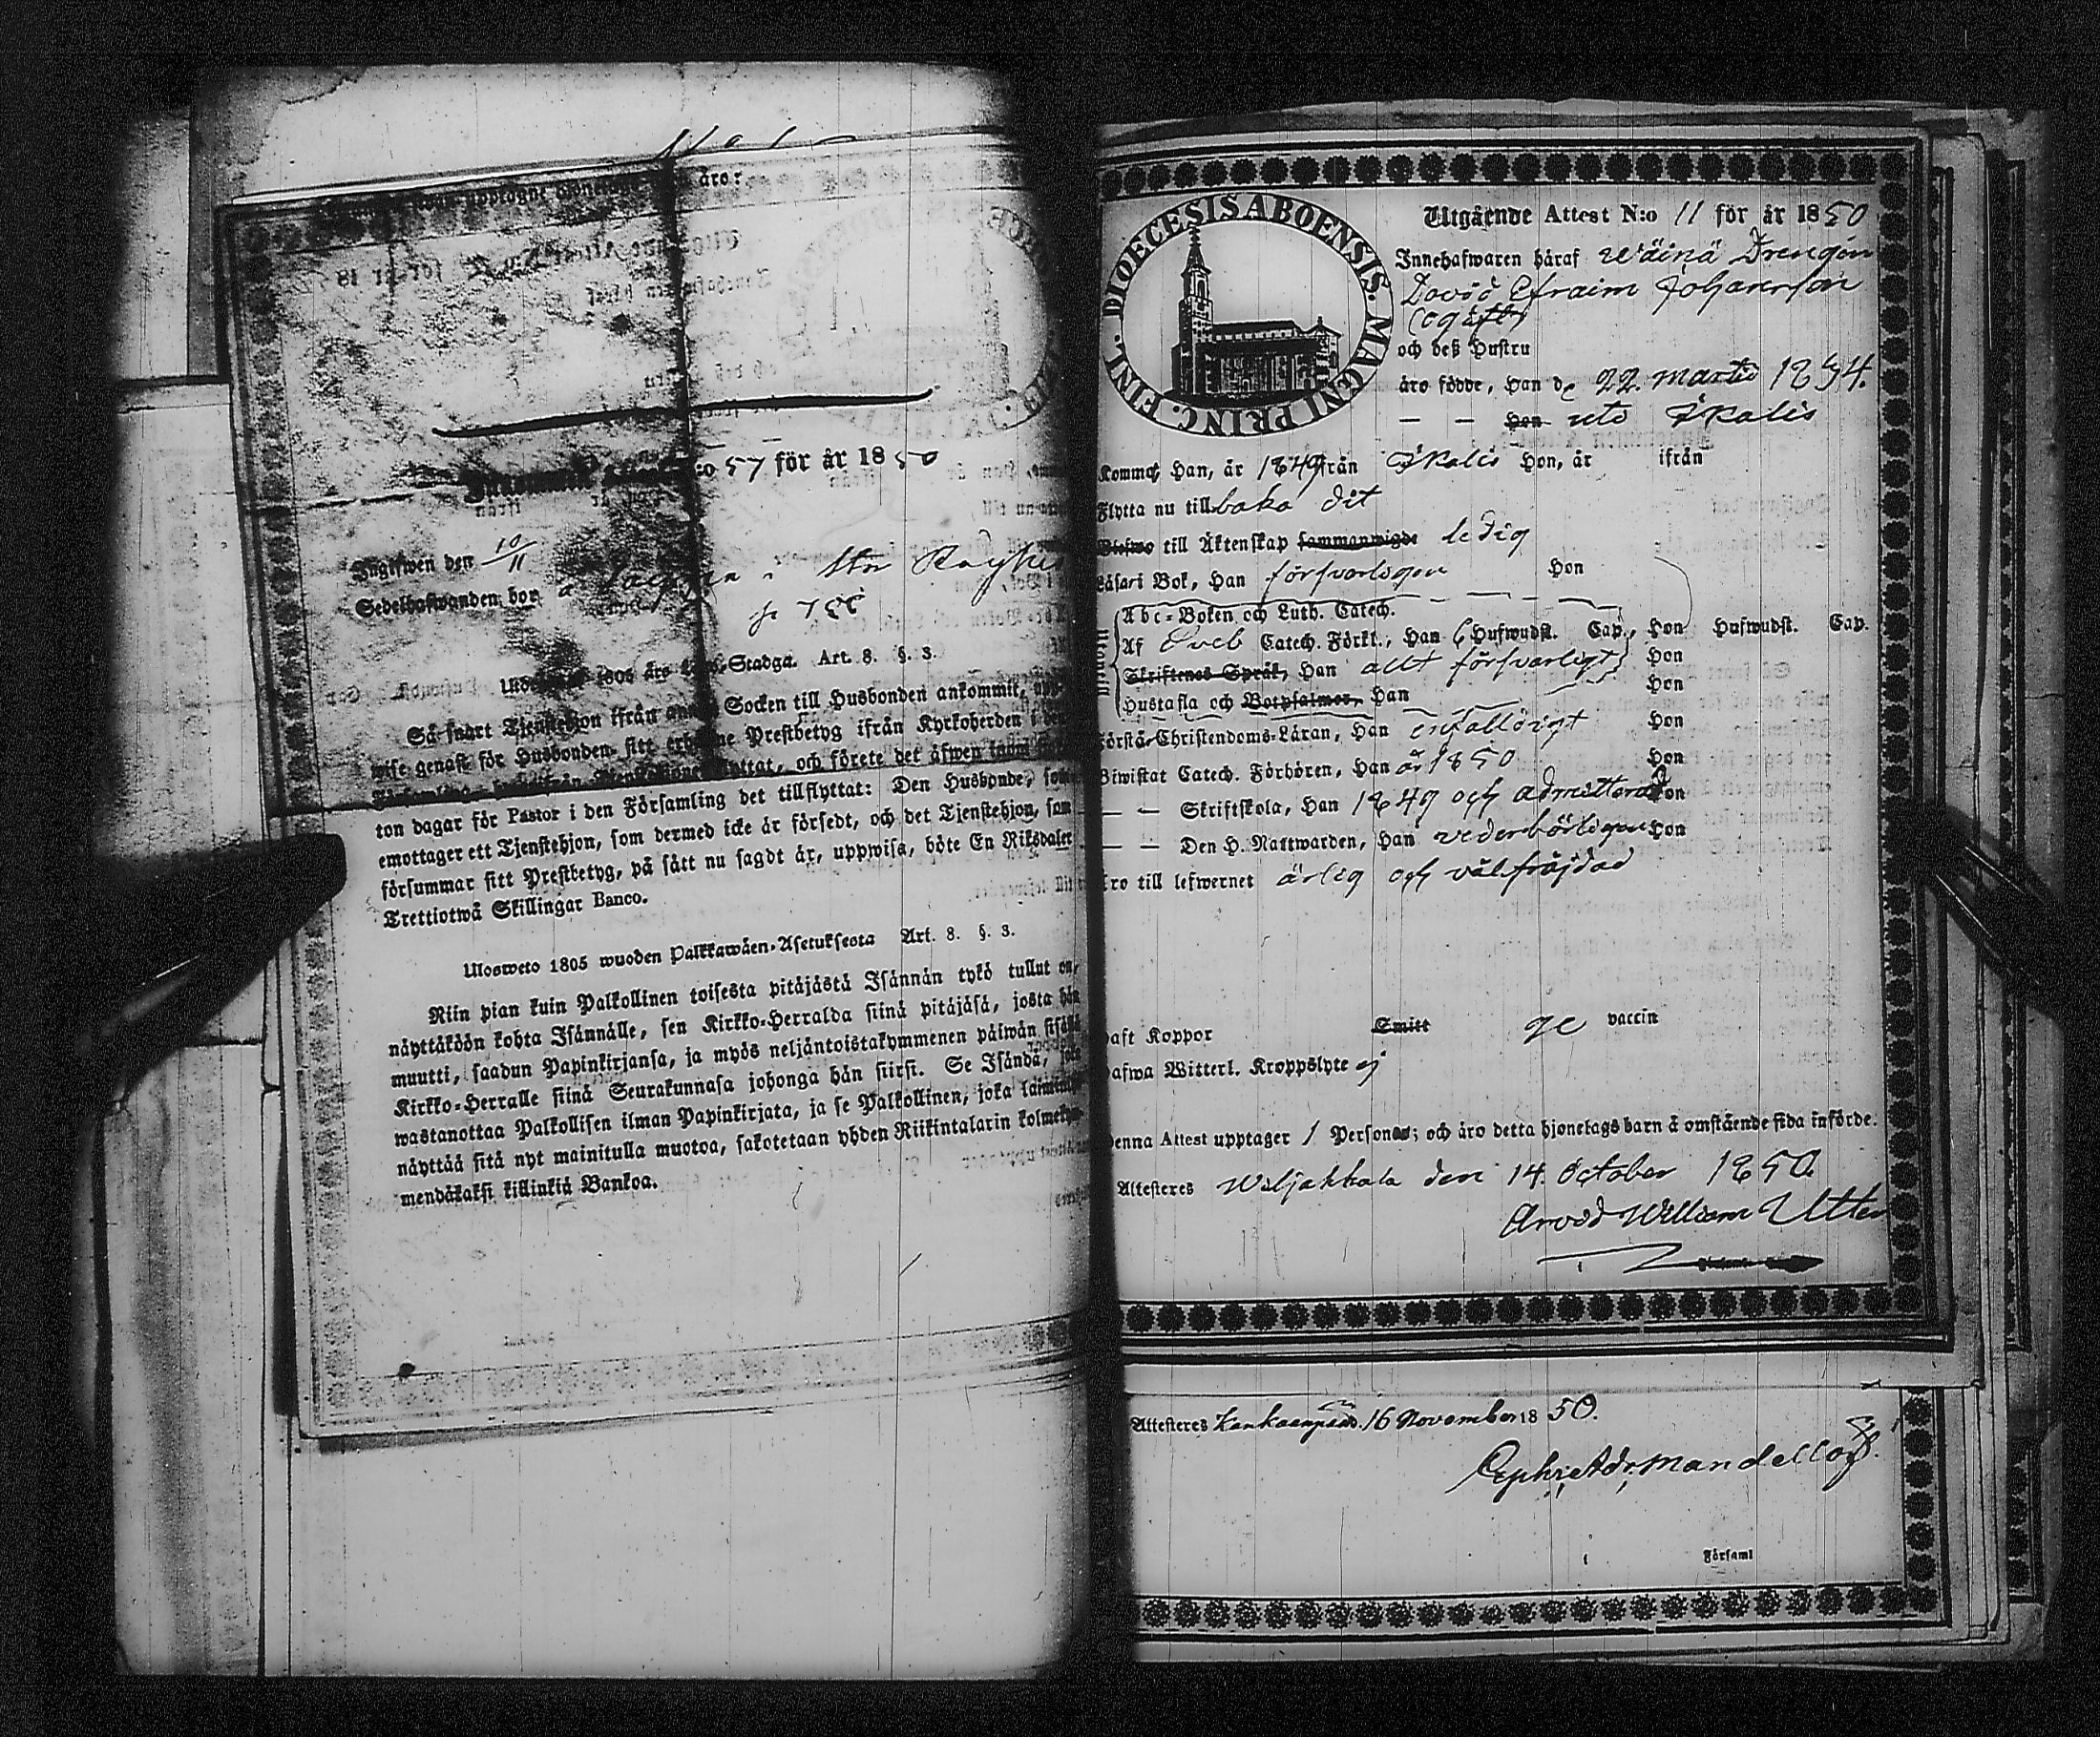 äro:
N:o 57 för år 1850
Ingifwen den 10/11
Sedelhafwanden bor å i
p 788
1805 års Stadga. Art. 8. §. 3.
Så snart Tjenstehjon ifrån Socken till Husbonden ankommit,
wise genast för Husbonden sitt Prestbetyg ifrån Kyrkoherden i den
flyttat, och förete det äfwen inom
ton dagar för Pastor i den Församling det tillflyttat: Den Husbonde, som
emottager ett Tjenstehjon, som dermed icke är försedt, och det Tjenstehjon, som
försummar sitt Prestbetyg, på sätt nu sagdt är, uppwisa, böte En Riksdaler
Trettiotwå Skillingar Banco.
Ulosweto 1805 wuoden Palkkawäen-Asetuksesta Art. 8. §. 3.
Niin pian kuin Palkollinen toisesta pitäjästä Isännän tykö tullut on,
näyttäköön kohta Isännälle, sen Kirkko-Herralda siinä pitäjäsä, josta hän
muutti, saadun Papinkirjansa, ja myös neljäntoistakymmenen päiwän sisällä
Kirkko-Herralle siinä Seurakunnasa johonga hän siirsi. Se Isändä, joka
wastanottaa Palkollisen ilman Papinkirjata, ja se Palkollinen, joka
näyttää sitä nyt mainitulla muotoa, sakotetaan yhden Riikintalarin kolmekym-
mendäkaksi killinkiä Bankoa.
DIOECESIS ABOENSIS. MAGNI PRINC. FINL.
Utgående Attest N:o 11 för år 1850
Innehafwaren häraf Wäinä Drengen
David Efraim Johansson
(ogift)
och deß Hustru
äro födde, Han d. 22 martii 1834.
— — Hon uti Ikalis
Kommo, Han, år 1849 ifrån Ikalis Hon, år ifrån
Flytta nu tillbaka dit
till Äktenskap sammanwigde ledig
Läsa i Bok, Han försvarligen Hon
Abc-Boken och Luth. Catech.
Af Sveb Catech. Förkl., Han 6 Hufwudst. Cap., Hon Hufwudst. Cap.
Skriftenes Språk, Han allt försvarligt Hon
Hustafla och Botpsalmer, Han Hon
Förstå Christendoms-Läran, Han enfaldigt Hon
Biwistat Catech. Förhören, Han år 1850 Hon
— — Skriftskola, Han 1849 och admitterad Hon
— — Den H. Nattwarden, Han vederbörligen Hon
Äro till lefwernet ärlig och välfräjdad
Haft Koppor Smitt vaccin
Hafwa Witterl. Kroppslyte ej
Denna Attest upptager 1 Personer; och äro detta hjonelags barn å omstående sida införde.
Attesteres Wiljakkala den 14. October 1850.
Arvid William Utter
Attesteres Kankaanpää d. 16 November 1850.
Mandellöf.
Församl